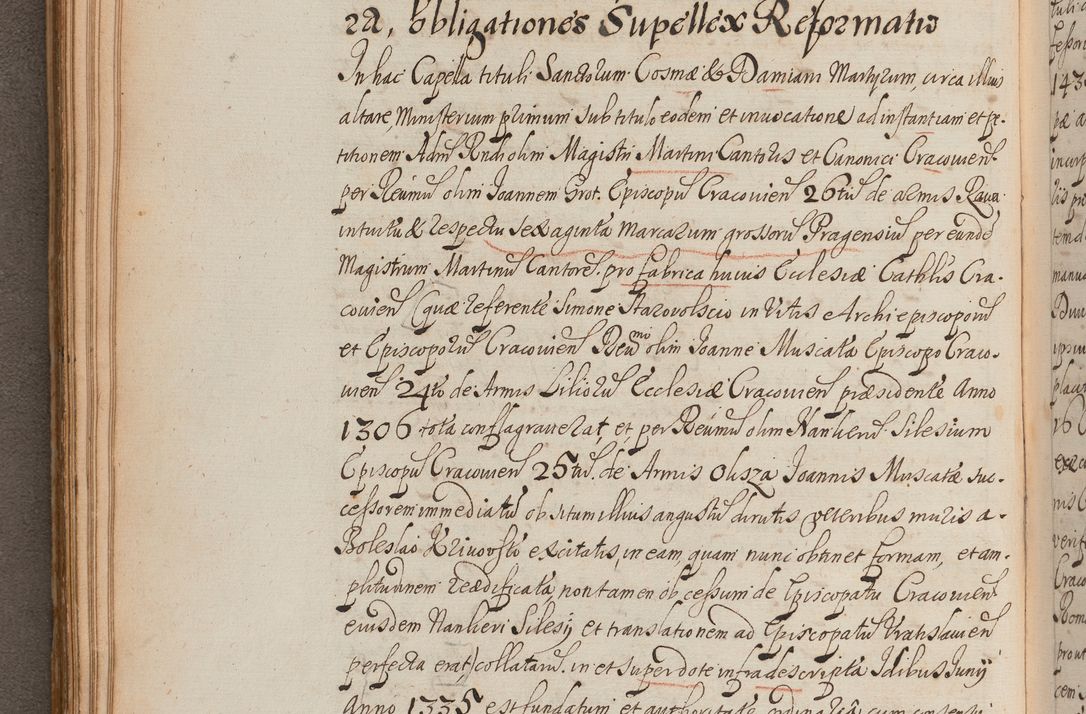 ra, Obligationes Supellex Reformatio
In hac Capella tituli Sanctorum Cosmæ & Damiani Martyrum, circa illius
altare, Ministerium primum sub titulo eodem et invocatione ad instantiam et pe-
titionem Adm Rndi olim Magistri Martini Cantoris et Canonici Cracovien
per Reumu olim Joannem Grot. Episcopu Cracovien 26tu de armis Rava
intuitu & respectu sexaginta marcarum grossoru Pragensiu per eunde
Magistrum Martinu Cantore. pro fabrica huius Ecclesiæ Cathlis Cra-
covien (quæ referente Simone Starovolscio in Vitis Archiepiscoporu
et Episcoporu Cracovien Reumo olim Joanne Muscata Episcopo Craco-
vien 24to de Armis Lilioru Ecclesiæ Cracovien præsidente Anno
1306 tota conflagraverat, et per Reumu olim Nankeru Silesium
Episcopu Cracovien 25tu. de Armis Oksza Joannis Muscatæ suc-
cessorem immediatu ob situm illius angustu dirutis veteribus muris a
Boleslao Krivousto excitatis, in eam, quam nunc obtinet formam, et am-
plitudinem reædificata, non tamen ob cessum de Episcopatu Cracovien
eiusdem Nankeri Silesij et translationem ad Episcopatu Vratislavien
perfecta erat) collataru. in et super dote infra descripta Idibus Junij
Anno 1335 est fundatum et authoritate ordinaria cum consensu
143
160